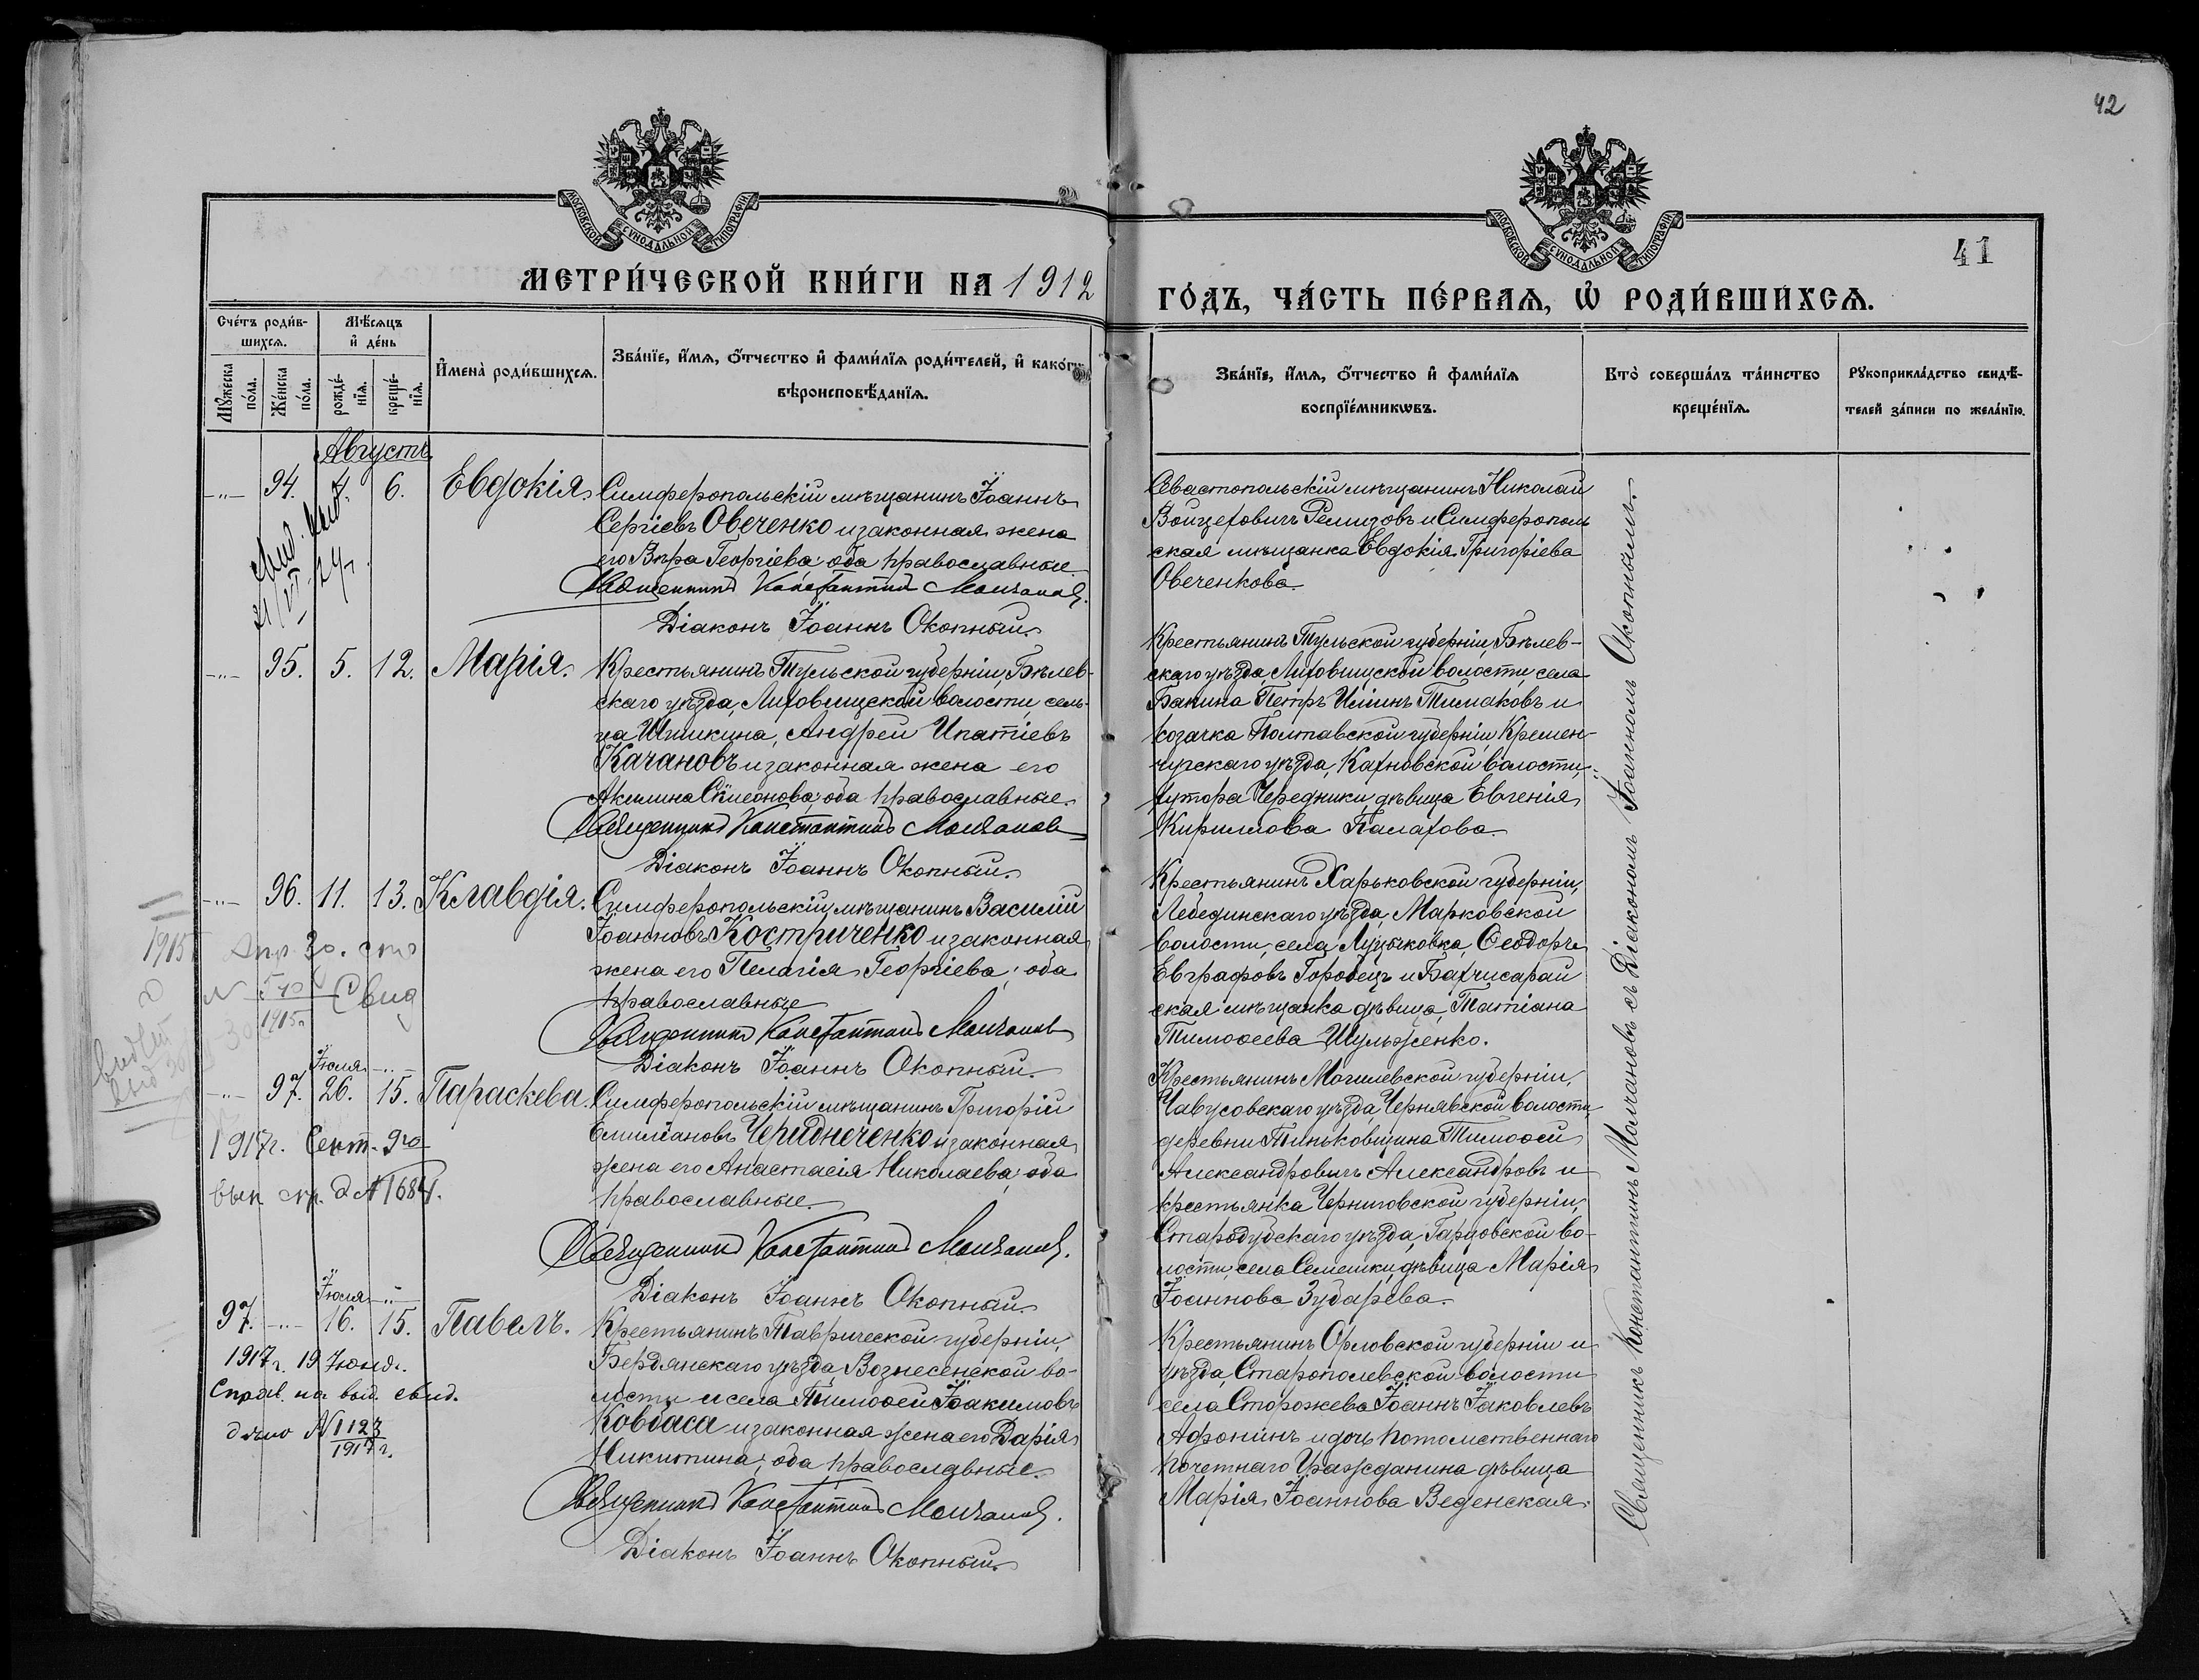 42
МОСКОВСКОЙ СѴНОДАЛЬНОЙ ТИПОГРАФІИ
МОСКОВСКОЙ СѴНОДАЛЬНОЙ ТИПОГРАФІИ
41
МЕТРИ́ЧЕСКОЙ КНИ́ГИ НА 1912
ГО́ДЪ, ЧА́СТЬ ПЕ́РВАѦ, Ѡ҆ РОДИ́ВШИХСѦ.
Сче́тъ роди́в-
шихсѧ.
Мѣ́сѧцъ
и҆ де́нь
Мꙋ́жеска
по́ла.
Же́нска
по́ла.
рожде́-
нїѧ.
креще́-
нїѧ.
И҆мена̀ роди́вшихсѧ.
Зва́нїе, и҆́мѧ, ѻ҆́тчество и҆ фами́лїѧ роди́телей, и҆ како́гѡ
вѣроисповѣ́данїѧ.
Зва́нїе, и҆́мѧ, ѻ҆́тчество и҆ фами́лїѧ
воспрїе́мникѡвъ.
Кто̀ соверша́лъ та́инство
креще́нїѧ.
Рꙋкоприкла́дство свидѣ́-
телей за́писи по жела́нїю.
Августъ
-"- 94. 4. 6. Евдокія.
Симферопольскій мѣщанинъ Іоаннъ
Сергіевъ Овеченко и законная жена
его Вѣра Георгіева; оба православные
Священникъ Константинъ Молчановъ.
Діаконъ Іоаннъ Окопный.
Севастопольскій мѣщанинъ Николай
Войцеховичъ Ремизовъ и Симферополь
ская мѣщанка Евдокія Григоріева
Овеченкова.
-"- 95. 5. 12. Марія.
Крестьянинъ Тульской губерніи, Бѣлев-
скаго уѣзда, Лиховищской волости, сель-
ца Шишкина, Андрей Ипатіевъ
Качановъ и законная жена его
Акилина Симеонова; оба православные.
Священникъ Константинъ Молчановъ
Діаконъ Іоаннъ Окопный.
Крестьянинъ Тульской губерніи, Бѣлев-
скаго уѣзда, Лиховищской волости, села
Бакина Петръ Ильинъ Тимаковъ и
козачка Полтавской губерніи, Кремен-
чугскаго уѣзда, Кахновской волости,
хутора Чередники, дѣвица Евгенія
Кириллова Палахова.
-"- 96. 11. 13. Клавдія.
Симферопольскій мѣщанинъ Василій
Іоанновъ Костриченко и законная
жена его Пелагія Георгіева; оба
православные
Священникъ Константинъ Молчановъ
Діаконъ Іоаннъ Окопный.
Крестьянинъ Харьковской губерніи,
Лебединскаго уѣзда, Марковской
волости, села Лучковка, Ѳеодоръ
Евграфовъ Городецъ и Бахчисарай
ская мѣщанка дѣвица, Татіана
Тимоѳеева Шульженко.
1915 Апр. 30.
1915г.
Свид
Іюля -"-
-"- 97. 26. 15. Параскева.
Симферопольскій мѣщанинъ Григорій
Емиліановъ Чередниченко и законная
жена его Анастасія Николаева; оба
православные.
Священникъ Константинъ Молчановъ.
Діаконъ Іоаннъ Окопный.
1917г. Сент. 9го
вып. №1684.
Крестьянинъ Могилевской губерніи,
Чавусовскаго уѣзда, Чернявской волости,
деревни Тиньковщина Тимоѳей
Александровичъ Александровъ и
крестьянка Черниговской губерніи,
Стародубскаго уѣзда, Гарцовской во-
лости, села Семешки, дѣвица Марія
Іоаннова Зубарева.
Іюля -"-
97. -"- 16. 15. Павелъ.
Крестьянинъ Таврической губерніи,
Бердянскаго уѣзда, Вознесенской во-
лости и села Тимоѳей Іоакимовъ
Ковбаса и законная жена его Дарія
Никитина; оба православные.
Священникъ Константинъ Молчановъ.
Діаконъ Іоаннъ Окопный.
1917г. 19 Іюня.
Справ. на выд. свид.
дано №1123
1917 г.
Крестьянинъ Орловской губерніи и
уѣзда, Старополевской волости
села Сторожева Іоаннъ Іаковлевъ
Афонинъ и дочь потомственнаго
почетнаго Гражданина дѣвица
Марія Іоаннова Веденская.
Священникъ Константинъ Молчановъ съ Діакономъ Іоанномъ Окопнымъ.